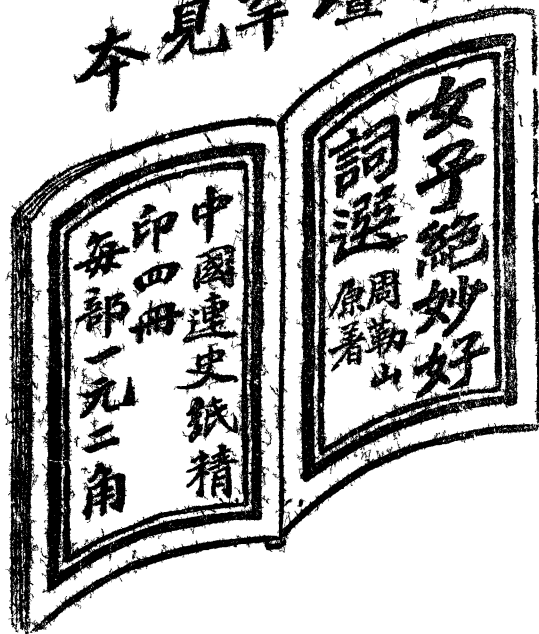 罕見本
女子絕妙好
詞選
周勒山
原著
中國連史紙精
印四冊
每部一元二角